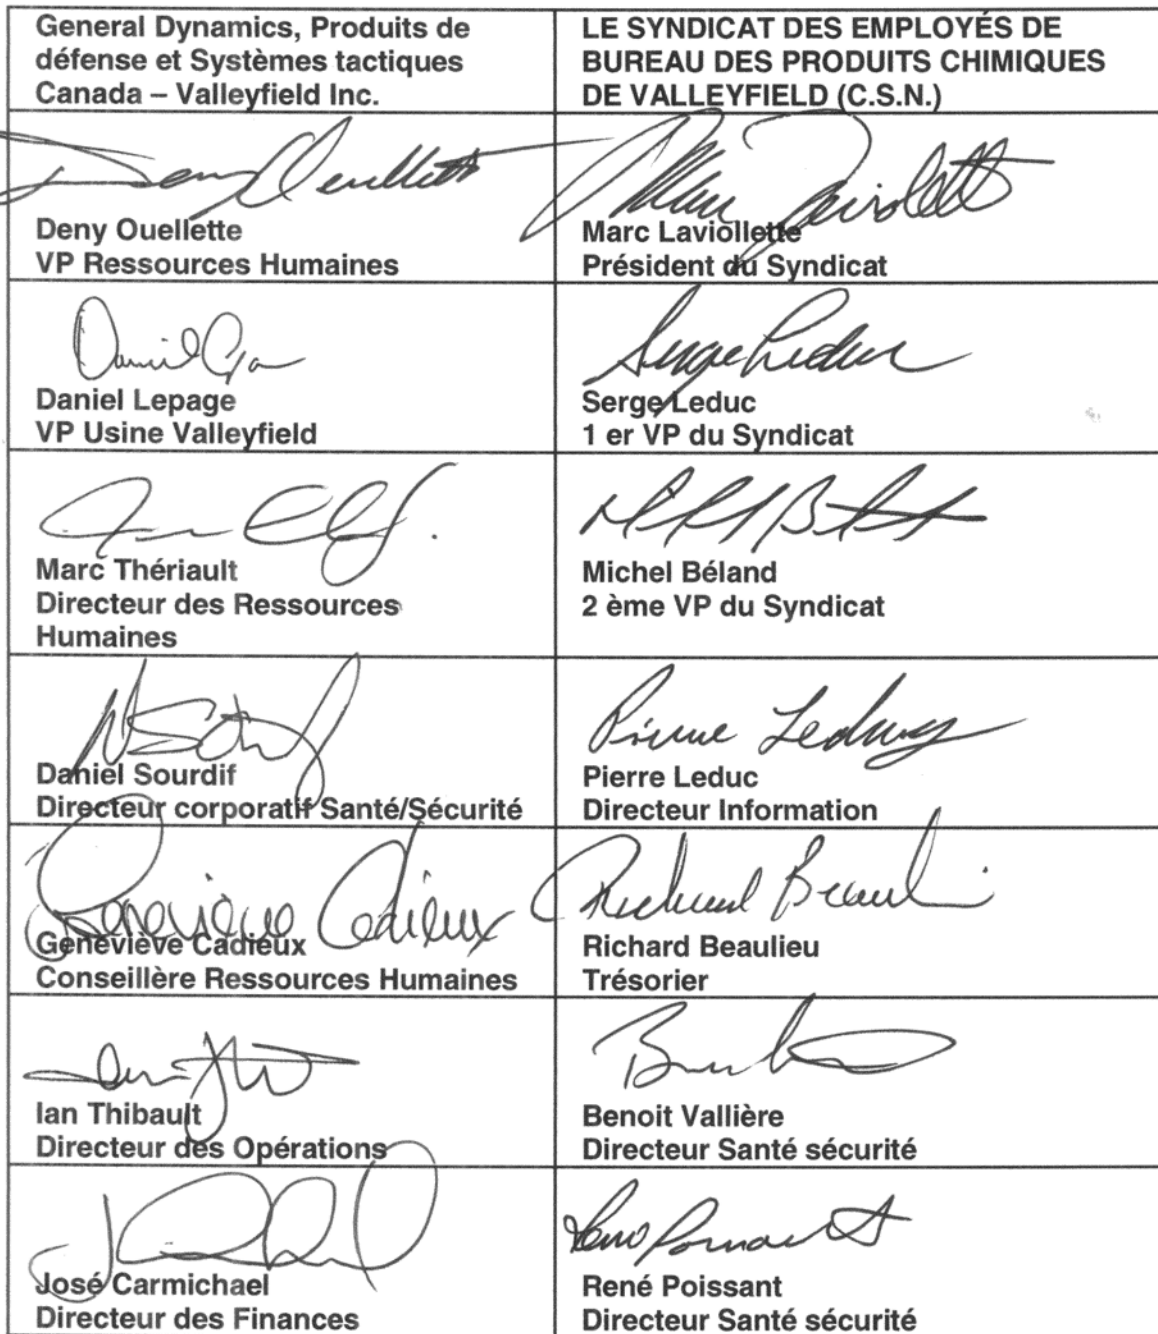 General Dynamics, Produits de
défense et Systèmes tactiques
Canada – Valleyfield Inc.
LE SYNDICAT DES EMPLOYÉS DE
BUREAU DES PRODUITS CHIMIQUES
DE VALLEYFIELD (C.S.N.)
Deny Ouellette
Deny Ouellette
VP Ressources Humaines
Marc Laviollette
Président du Syndicat
Daniel Lepage
VP Usine Valleyfield
Serge Leduc
Serge Leduc
1 er VP du Syndicat
Marc Thériault
Directeur des Ressources
Humaines
Michel Béland
2 ème VP du Syndicat
Daniel Sourdif
Directeur corporatif Santé/Sécurité
Pierre Leduc
Pierre Leduc
Directeur Information
Geneviève Cadieux
Geneviève Cadieux
Conseillère Ressources Humaines
Richard Beaulieu
Richard Beaulieu
Trésorier
Ian Thibault
Directeur des Opérations
Benoit Vallière
Directeur Santé sécurité
José Carmichael
Directeur des Finances
René Poissant
Directeur Santé sécurité